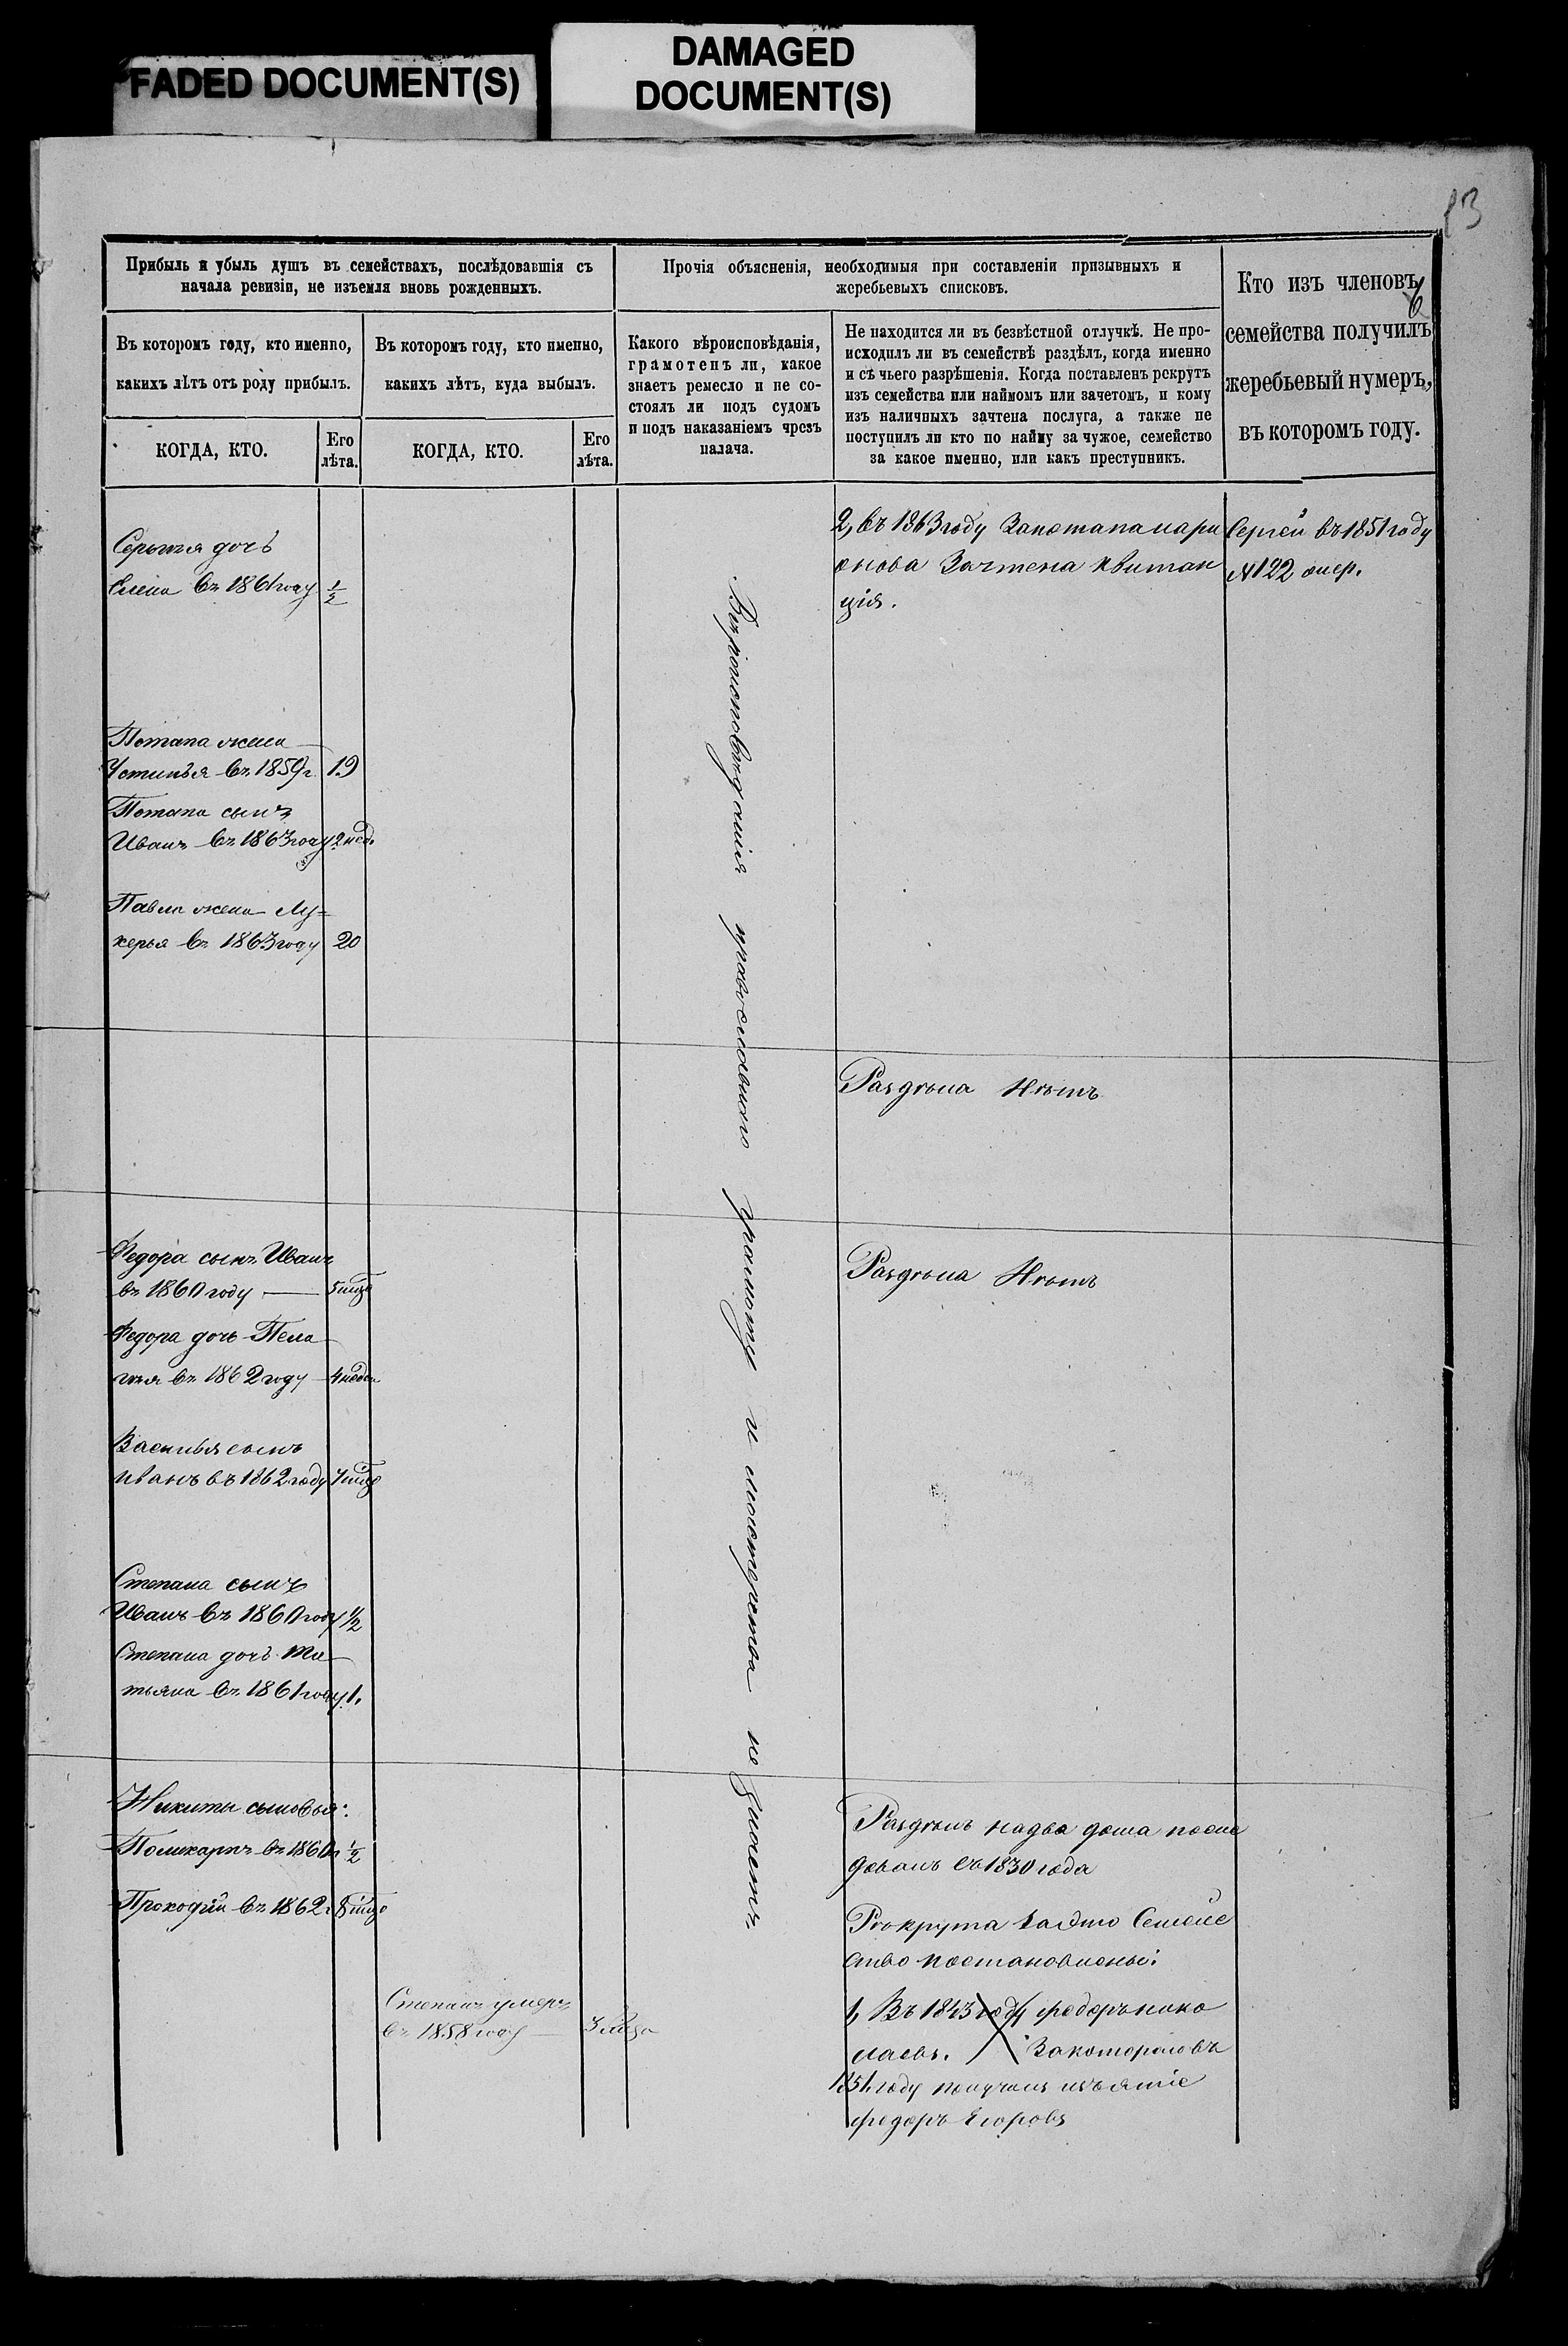 FADED DOCUMENT(S)
DAMAGED
DOCUMENT(S)
13
6
Прибыль и убыль душъ въ семействахъ, послѣдовавшія съ
начала ревизіи, не изъемля вновь рожденныхъ.
Въ которомъ году, кто именно,
какихъ лѣтъ отъ роду прибылъ.
КОГДА, КТО.
Его
лѣта.
Въ которомъ году, кто именно,
какихъ лѣтъ, куда выбылъ.
КОГДА, КТО.
Его
лѣта.
Прочія объясненія, необходимыя при составленіи призывныхъ и
жеребьевыхъ списковъ.
Какого вѣроисповѣданія,
грамотенъ ли, какое
знаетъ ремесло и не со-
стоялъ ли подъ судомъ
и подъ наказаніемъ чрезъ
палача.
Не находится ли въ безвѣстной отлучкѣ. Не про-
исходилъ ли въ семействѣ раздѣлъ, когда именно
и съ чьего разрѣшенія. Когда поставленъ рекрутъ
изъ семейства или наймомъ или зачетомъ, и кому
изъ наличныхъ зачтена послуга, а также не
поступилъ ли кто по найму за чужое, семейство
за какое именно, или какъ преступникъ.
Кто изъ членовъ
семейства получилъ
жеребьевый нумеръ,
въ которомъ году.
дочь
Елена въ 1861 году 1/2
Потапа жена
Устинья въ 1859 г. 19
Потапа сынъ
Иванъ въ 1863 году 2 нед.
Павла жена Лу=
керья въ 1863 году 20
Федора сынъ Иванъ
въ 1860 году
Федора дочь Пела
гея въ 1862 году
Василья сынъ
Иванъ въ 1862 году
Степана сынъ
Иванъ въ 1860 году 1/2
Степана дочь Та
тьяна въ 1861 году 1.
Никиты сыновья:
Поликарпъ въ 1860 г 1/2
Прокофiй въ 1862 г
Степанъ умеръ
въ 1858 году
Вѣроисповѣданія православнаго грамоту и мастерства не знаетъ
2, въ 1863 году За потапа лари
онова Зачтена квитан
ція.
Сергей въ 1851 году
№ 122
Раздѣла Нѣтъ
Раздѣла Нѣтъ
Раздѣлъ на два дома после
довалъ въ 1830 года
Рекрута за Это Семейс
тво постановлены:
1, Въ 1843 году федоръ нико
лаевъ. За котораго въ
1851 году получилъ изъятіе
федоръ Егоровъ